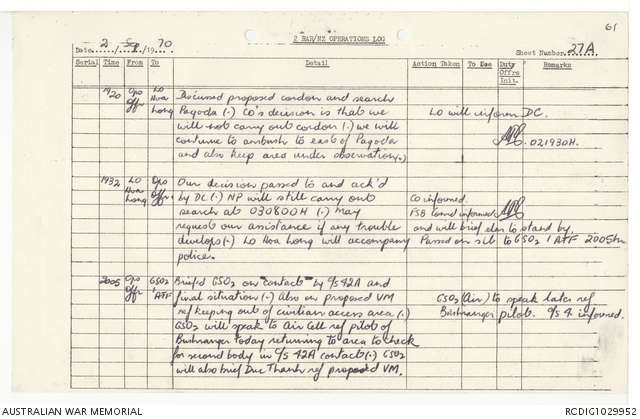 61
2 RAR/NZ OPERATIONS LOG
Date 2 / Sep /19 70
Sheet Number 27A
Serial Time From To Detail Action Taken To Duo Duty Offrs Init. Remarks
1920 Ops Offr LO Hoa Long Discussed proposed cordon and search
Pagoda (.) CO's decision is that we
will not carry out cordon (.) we will
continue to ambush to east of Pagoda
and also keep area under observation(.)
LO will inform DC.
021930H.
1932 LO Hoa Long Ops Offr. Our decision passed to and ack'd
by DC (.) NP will still carry out
search at 030800H (.) may
request our assistance if any trouble
develops(.) LO Hoa Long will accompany
police.
CO informed.
FSB informed
and will brief to stand by.
Passed on sit to GSO2 1 ATF 2005hr
2005 Ops Offr GSO2 1ATF Briefed GSO2 on "contact" by C/S 42A and
final situation (.) Also on proposed VM
ref keeping out of civilian access area (.)
GSO2 will speak to Air Cell ref pilot of
Bushranger today returning to area to check
for second body in C/S 42A contact(.) GSO2
will also brief Duc Thanh ref proposed VM.
GSO2 (Air) to speak later ref
Bushranger pilot. C/S 4 informed.
AUSTRALIAN WAR MEMORIAL
RCDIG1029952